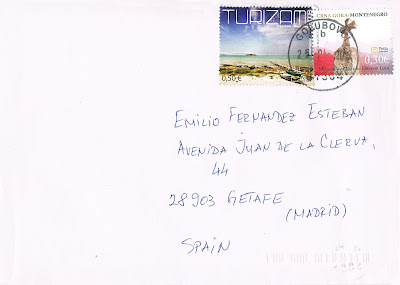 TURIZAM
0,50 €
CRNA GORA · MONTENEGRO
0,30€
GOLUBOVCI
b
Emilio Fernandez Esteban
Avenida Juan de la Clerva,
44
28903 Getafe
(Madrid)
Spain